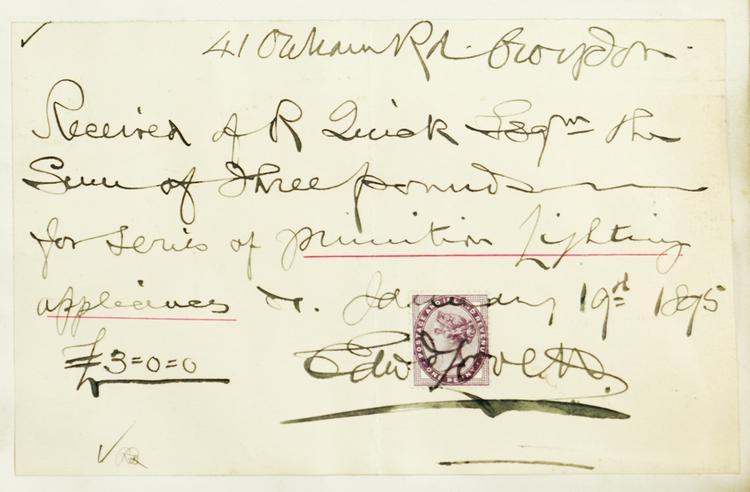 41 Outram Rd. Croydon.
Received of R Quick Esqre the
Sum of Three pounds
for series of primitive Lighting
appliances &c. January 19th 1895
£3=0=0
Edw Lovett
POSTAGE AND INLAND REVENUE
ONE PENNY